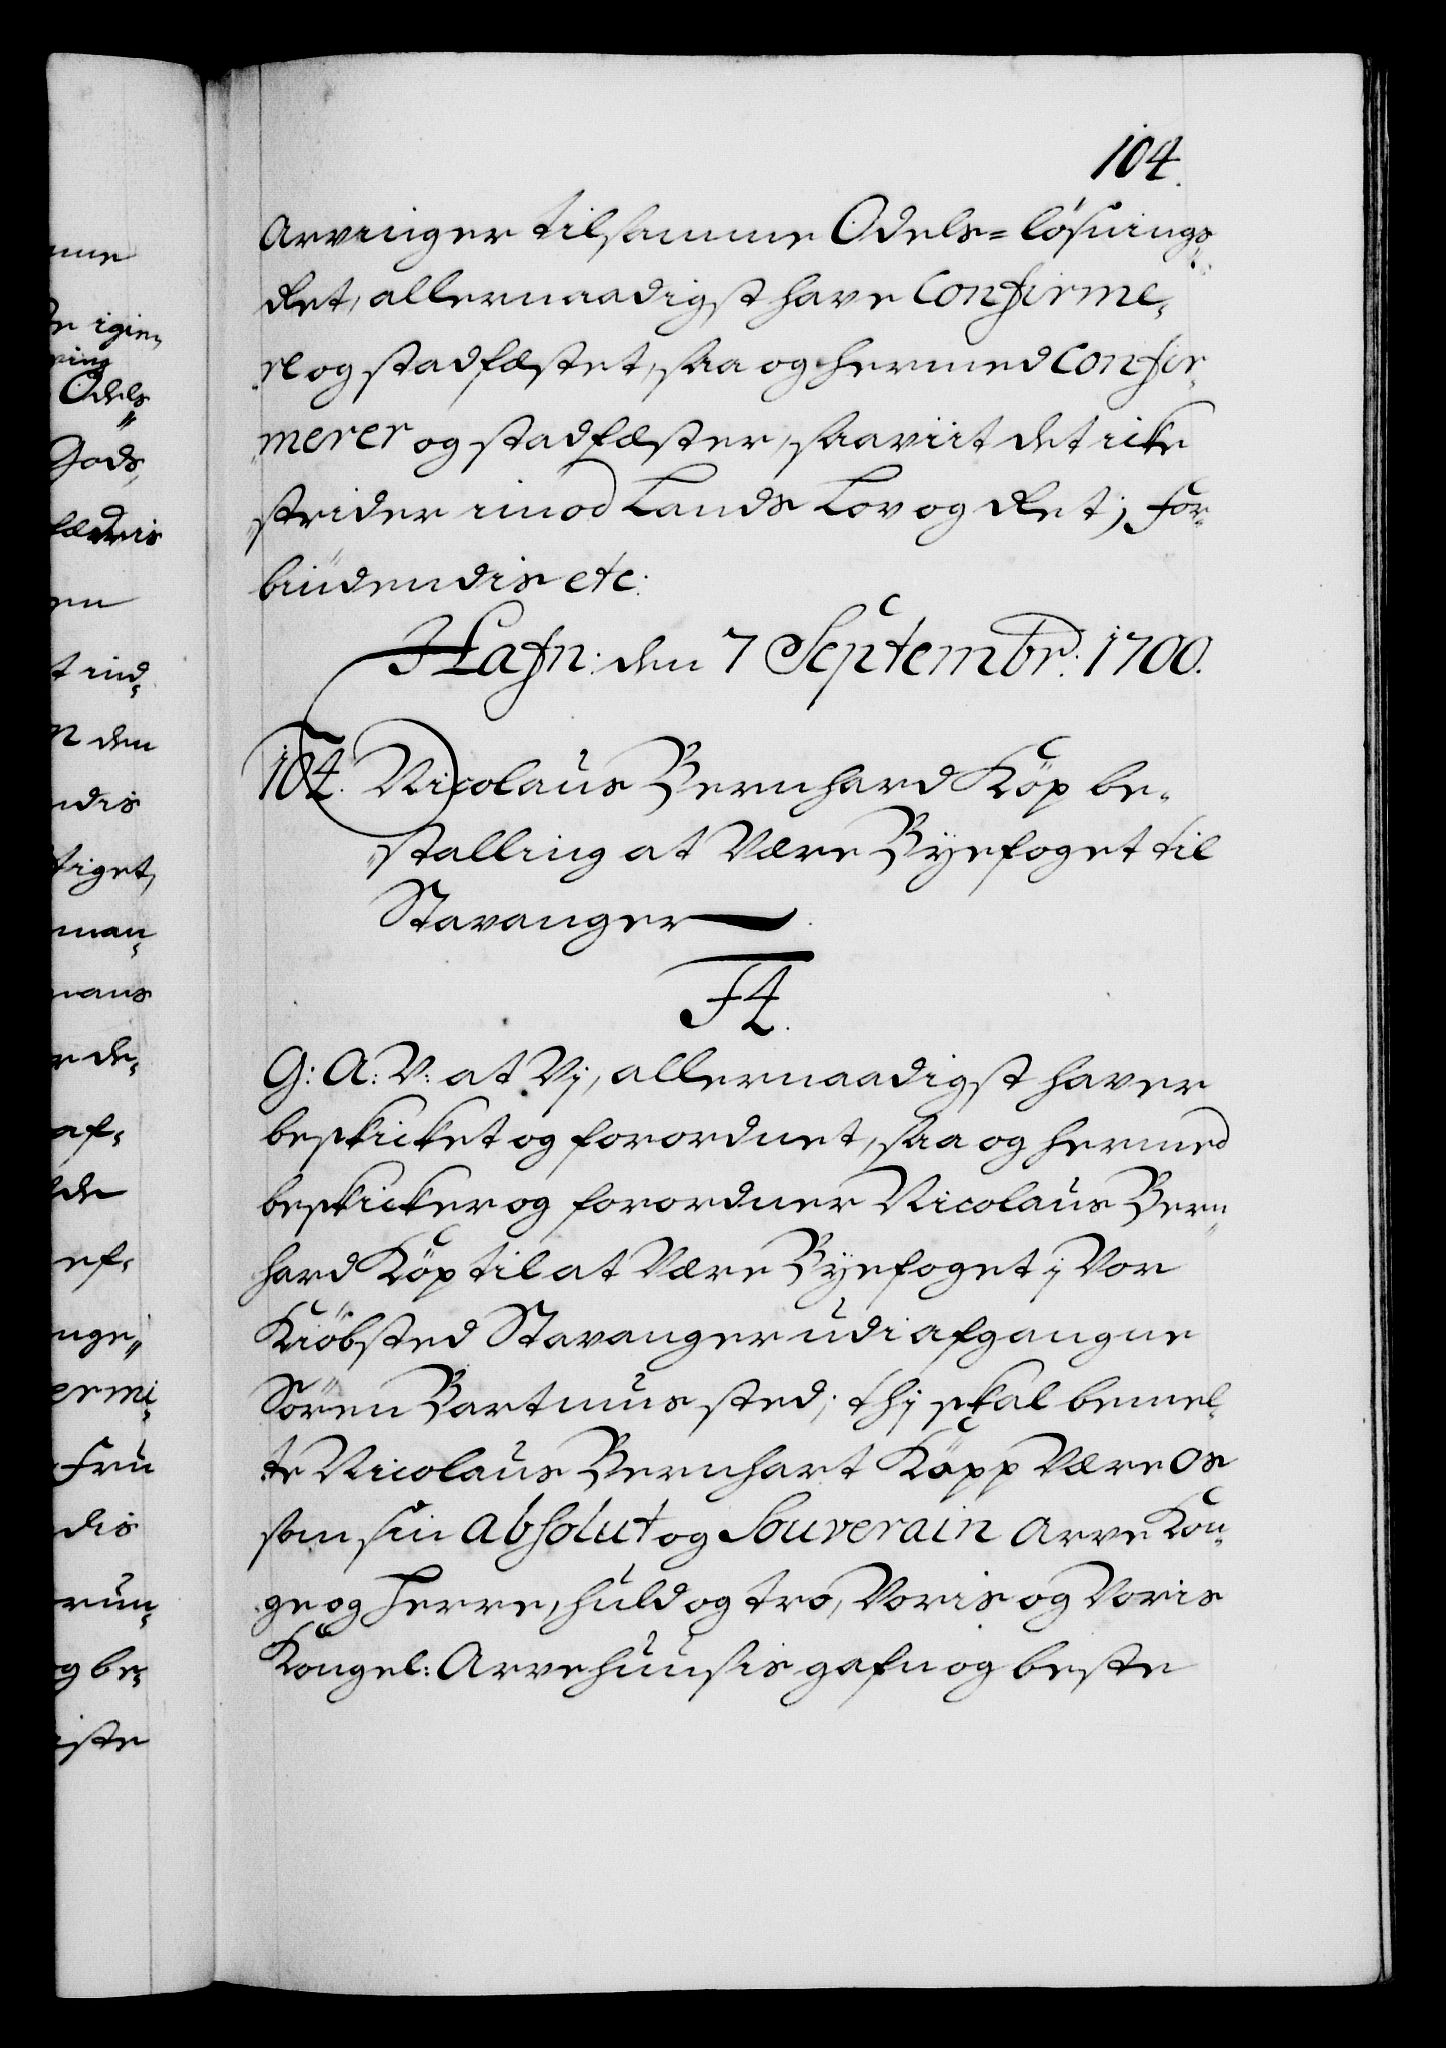 104.
Arvinger til samme Odels=løsnings
Ret, allernaadigst have Confirme,
re og stadfæstet, saa og hermed Confir,
merer og stadfæster, saavit det icke
strider imod Lands Lov og Ret; For,
biudendis etc:
Hafn: den 7 Septembr: 1700.
104. Nicolaus Bernhard Köp be,
stalling at Være Byefoget til
Stavanger
F4.
G: A: V: at Vj, allernaadigst haver
beskicket og forordnet, saa og hermed
beskicker og forordner Nicolaus Bern,
hard Köp til at Være Byefoget j Vor
Kiöbsted Stavanger udi afgangne
Sören Bartmus sted; thj skal bemel,
te Nicolaus Bernhart Köpp Være Os
som sin absolut og Souverain Arve Kon,
ge og Herre, huld og tro, Voris og Voris
Kongel: Arvehuusis gafn og beste
me
igien,
Odels
Gods,
en
t ind,
den
ndis
tiget,
man,
mans
de,
af,
de
ef,
nge,
ermi,
Fru
dis
run,
g be,
iste